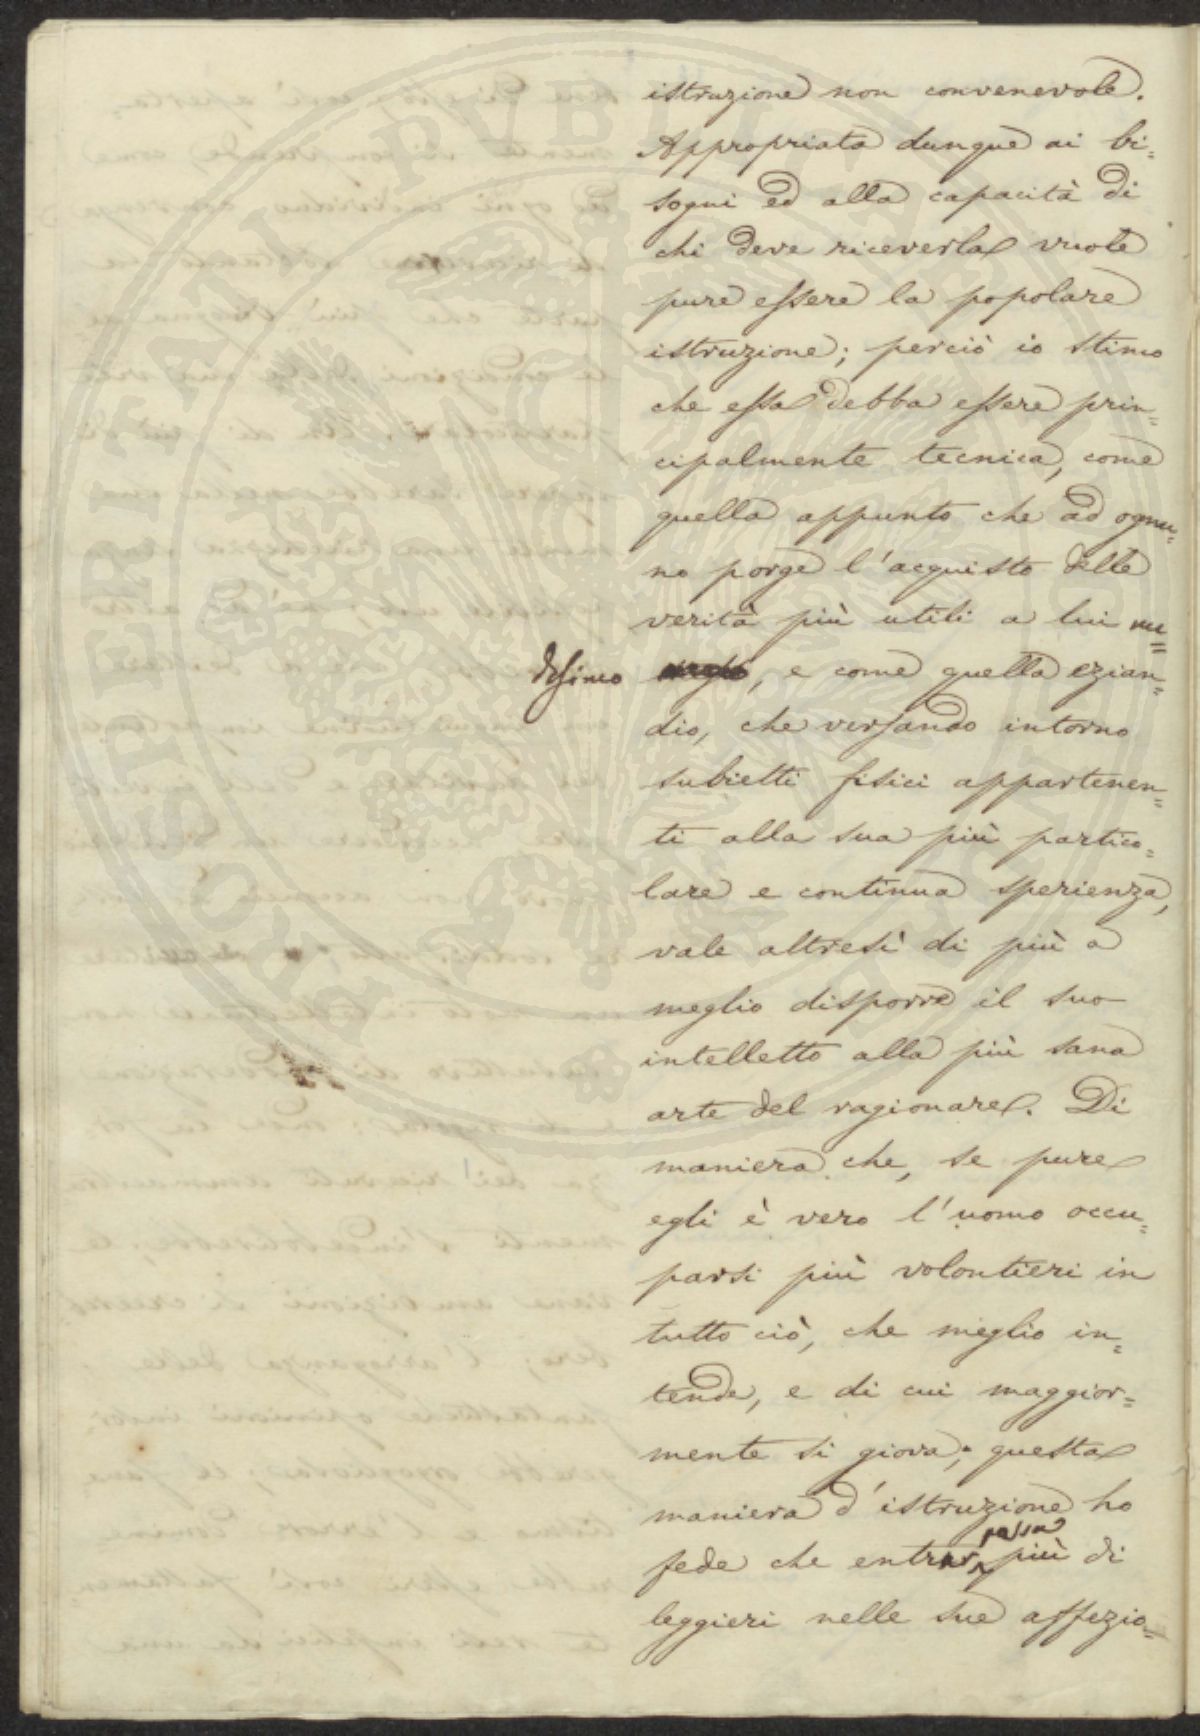 istruzione non convenevole.
Appropriata dunque ai bi=
sogni ed alla capacità di
chi deve riceverla vuole
pure essere la popolare
istruzione; perciò io stimo
che essa debba essere prin=
cipalmente tecnica, come
quella appunto che ad ognu=
no porge l'acquisto delle
verità più utili a lui me=
desimo, e come quella ezian=
dio, che versando intorno
subietti fisici appartenen=
ti alla sua più partico=
lare e continua sperienza,
vale altresì di più a
meglio disporre il suo
intelletto alla più sana
arte del ragionare. Di
maniera che, se pure
egli è vero l'uomo occu=
parsi più volontieri in
tutto ciò, che meglio in=
tende, e di cui maggior=
mente si giova; questa
maniera d'istruzione ho
fede che entrar possa più di
leggieri nelle sue affezio=
PROSPERITATI PVBLICAE